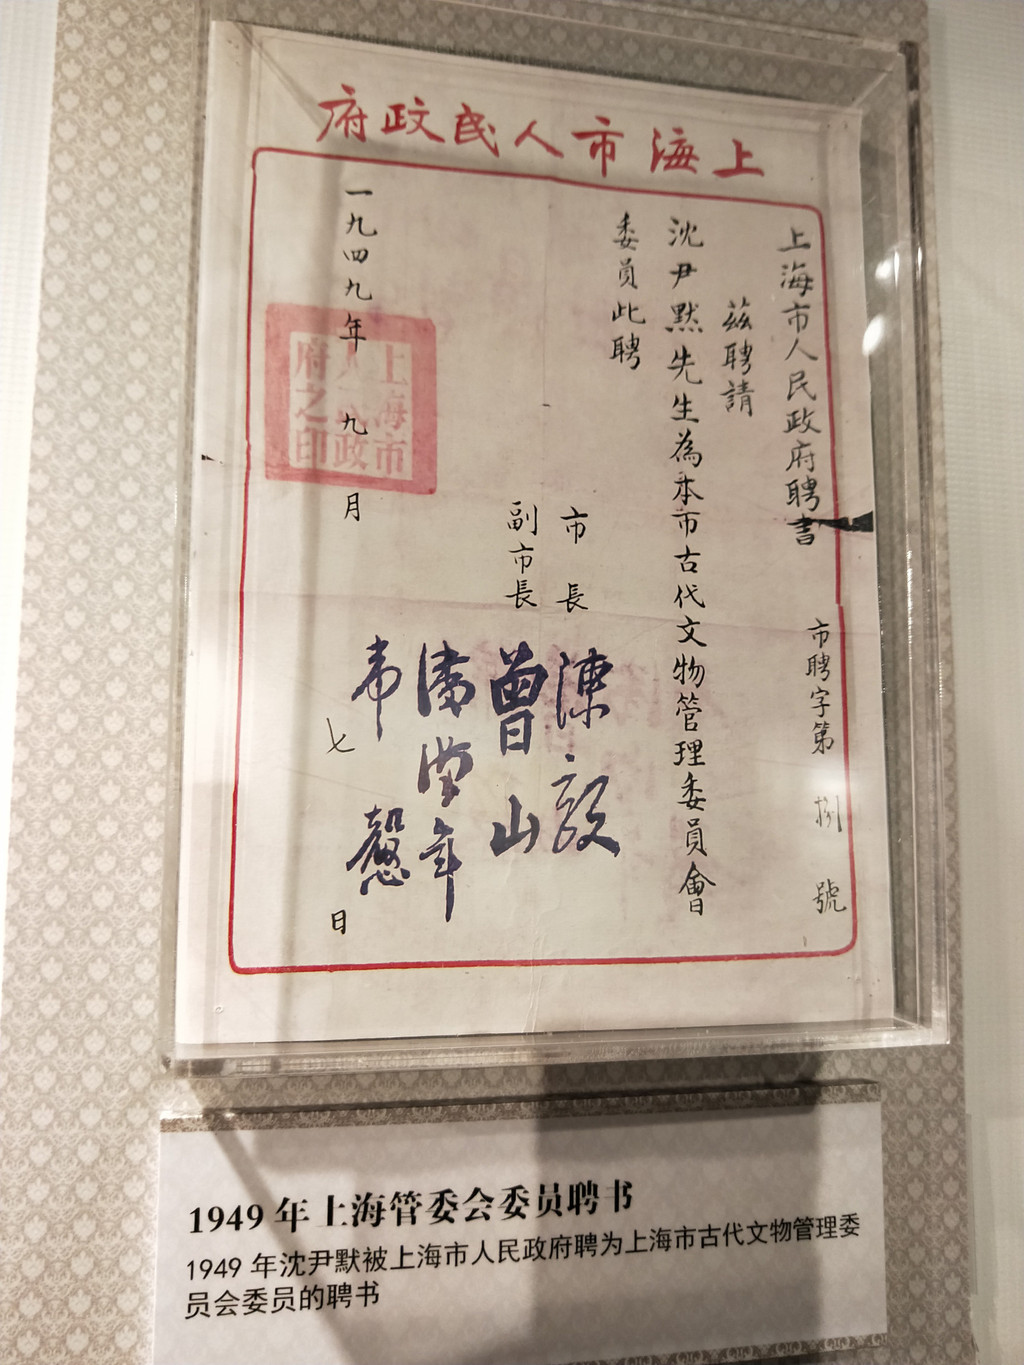 上海市人民政府
上海市人民政府聘書
市聘字第捌號
茲聘請
沈尹默先生為本市古代文物管理委員會
委員此聘
市長 陳毅
副市長 曾山
潘漢年
韦慤
一九四九年九月七日
上海市人民政府之印
1949年上海管委会委员聘书
1949年沈尹默被上海市人民政府聘为上海市古代文物管理委
员会委员的聘书